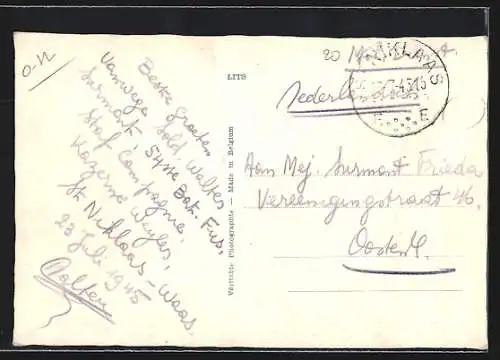 O-Vl
Beste groeten
Vanwege sold. Walter
Surmont, 54ste Bat. Fus.
Staf Compagnie.
Kazerne Weyler,
St Niklaas - Waas.
23 Juli 1945
Walter
LITS
Véritable Photographie — Made in Belgium
20
KLAAS
Nederlanden
Aan Mej. Surmont Frieda
Vereenigingstraat 46,